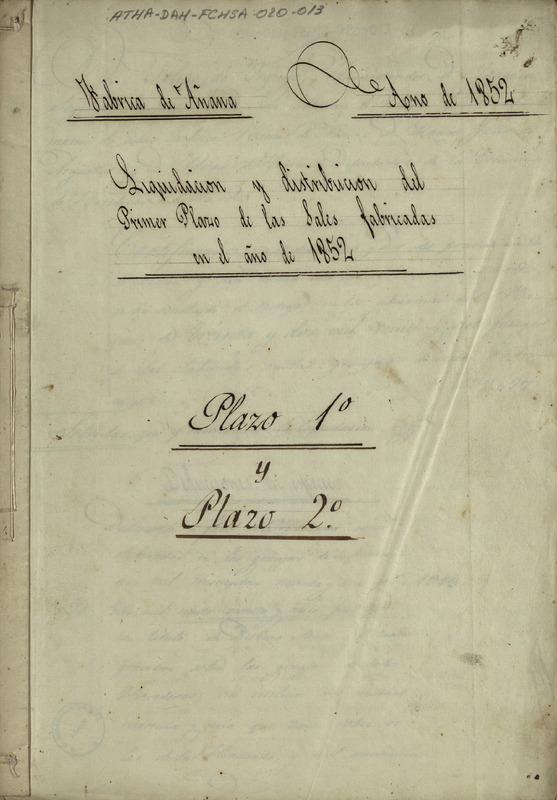 ATHA-DAH-FCHSA-020-013
Fabrica de Añana
Año de 1852
Liquidacion y distribucion del
Primer Plazo de las Sales fabricadas
en el año de 1852
Plazo 1º
y
Plazo 2º